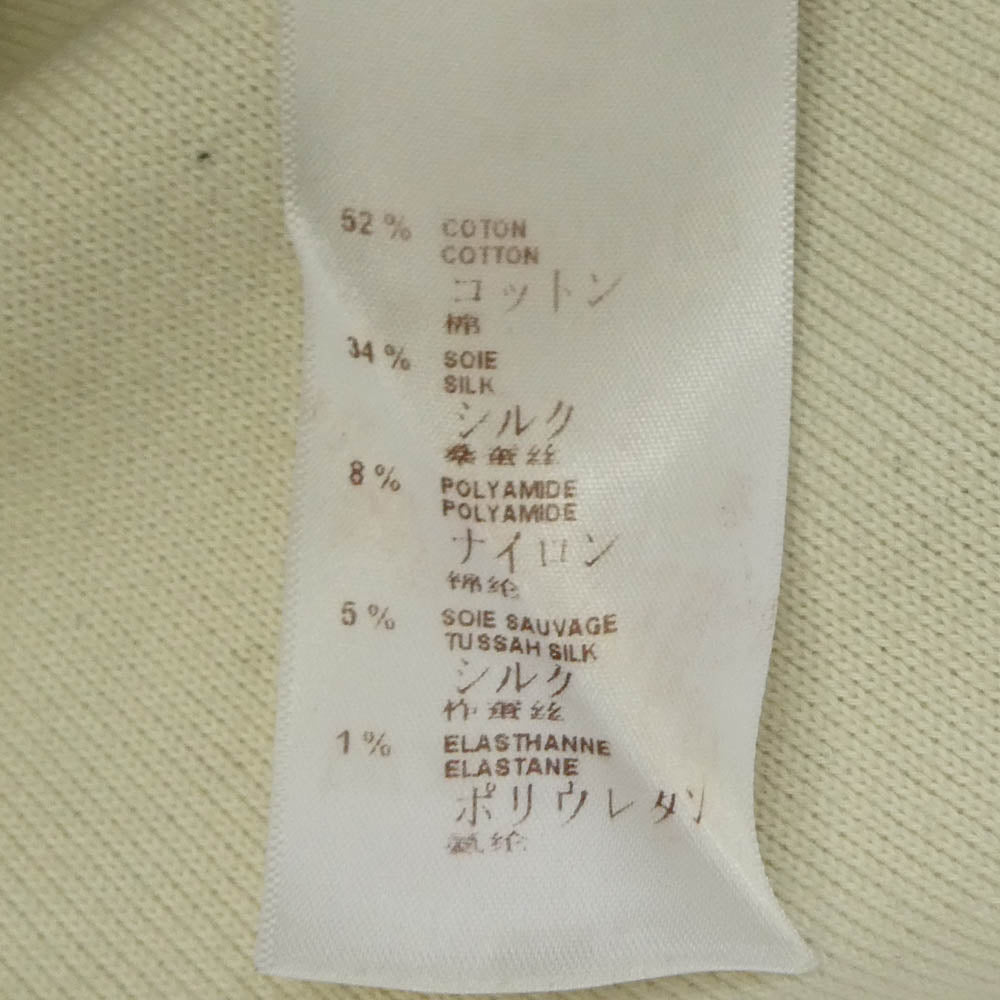 52 % COTON
COTTON
コットン
棉
34 % SOIE
SILK
シルク
桑蚕丝
8 % POLYAMIDE
POLYAMIDE
ナイロン
锦纶
5 % SOIE SAUVAGE
TUSSAH SILK
シルク
柞蚕丝
1 % ELASTHANNE
ELASTANE
ポリウレタン
氨纶